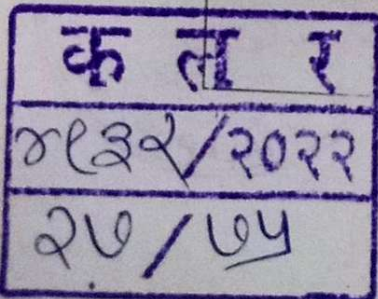 क ल र
४९३२/२०२२
२७/७५